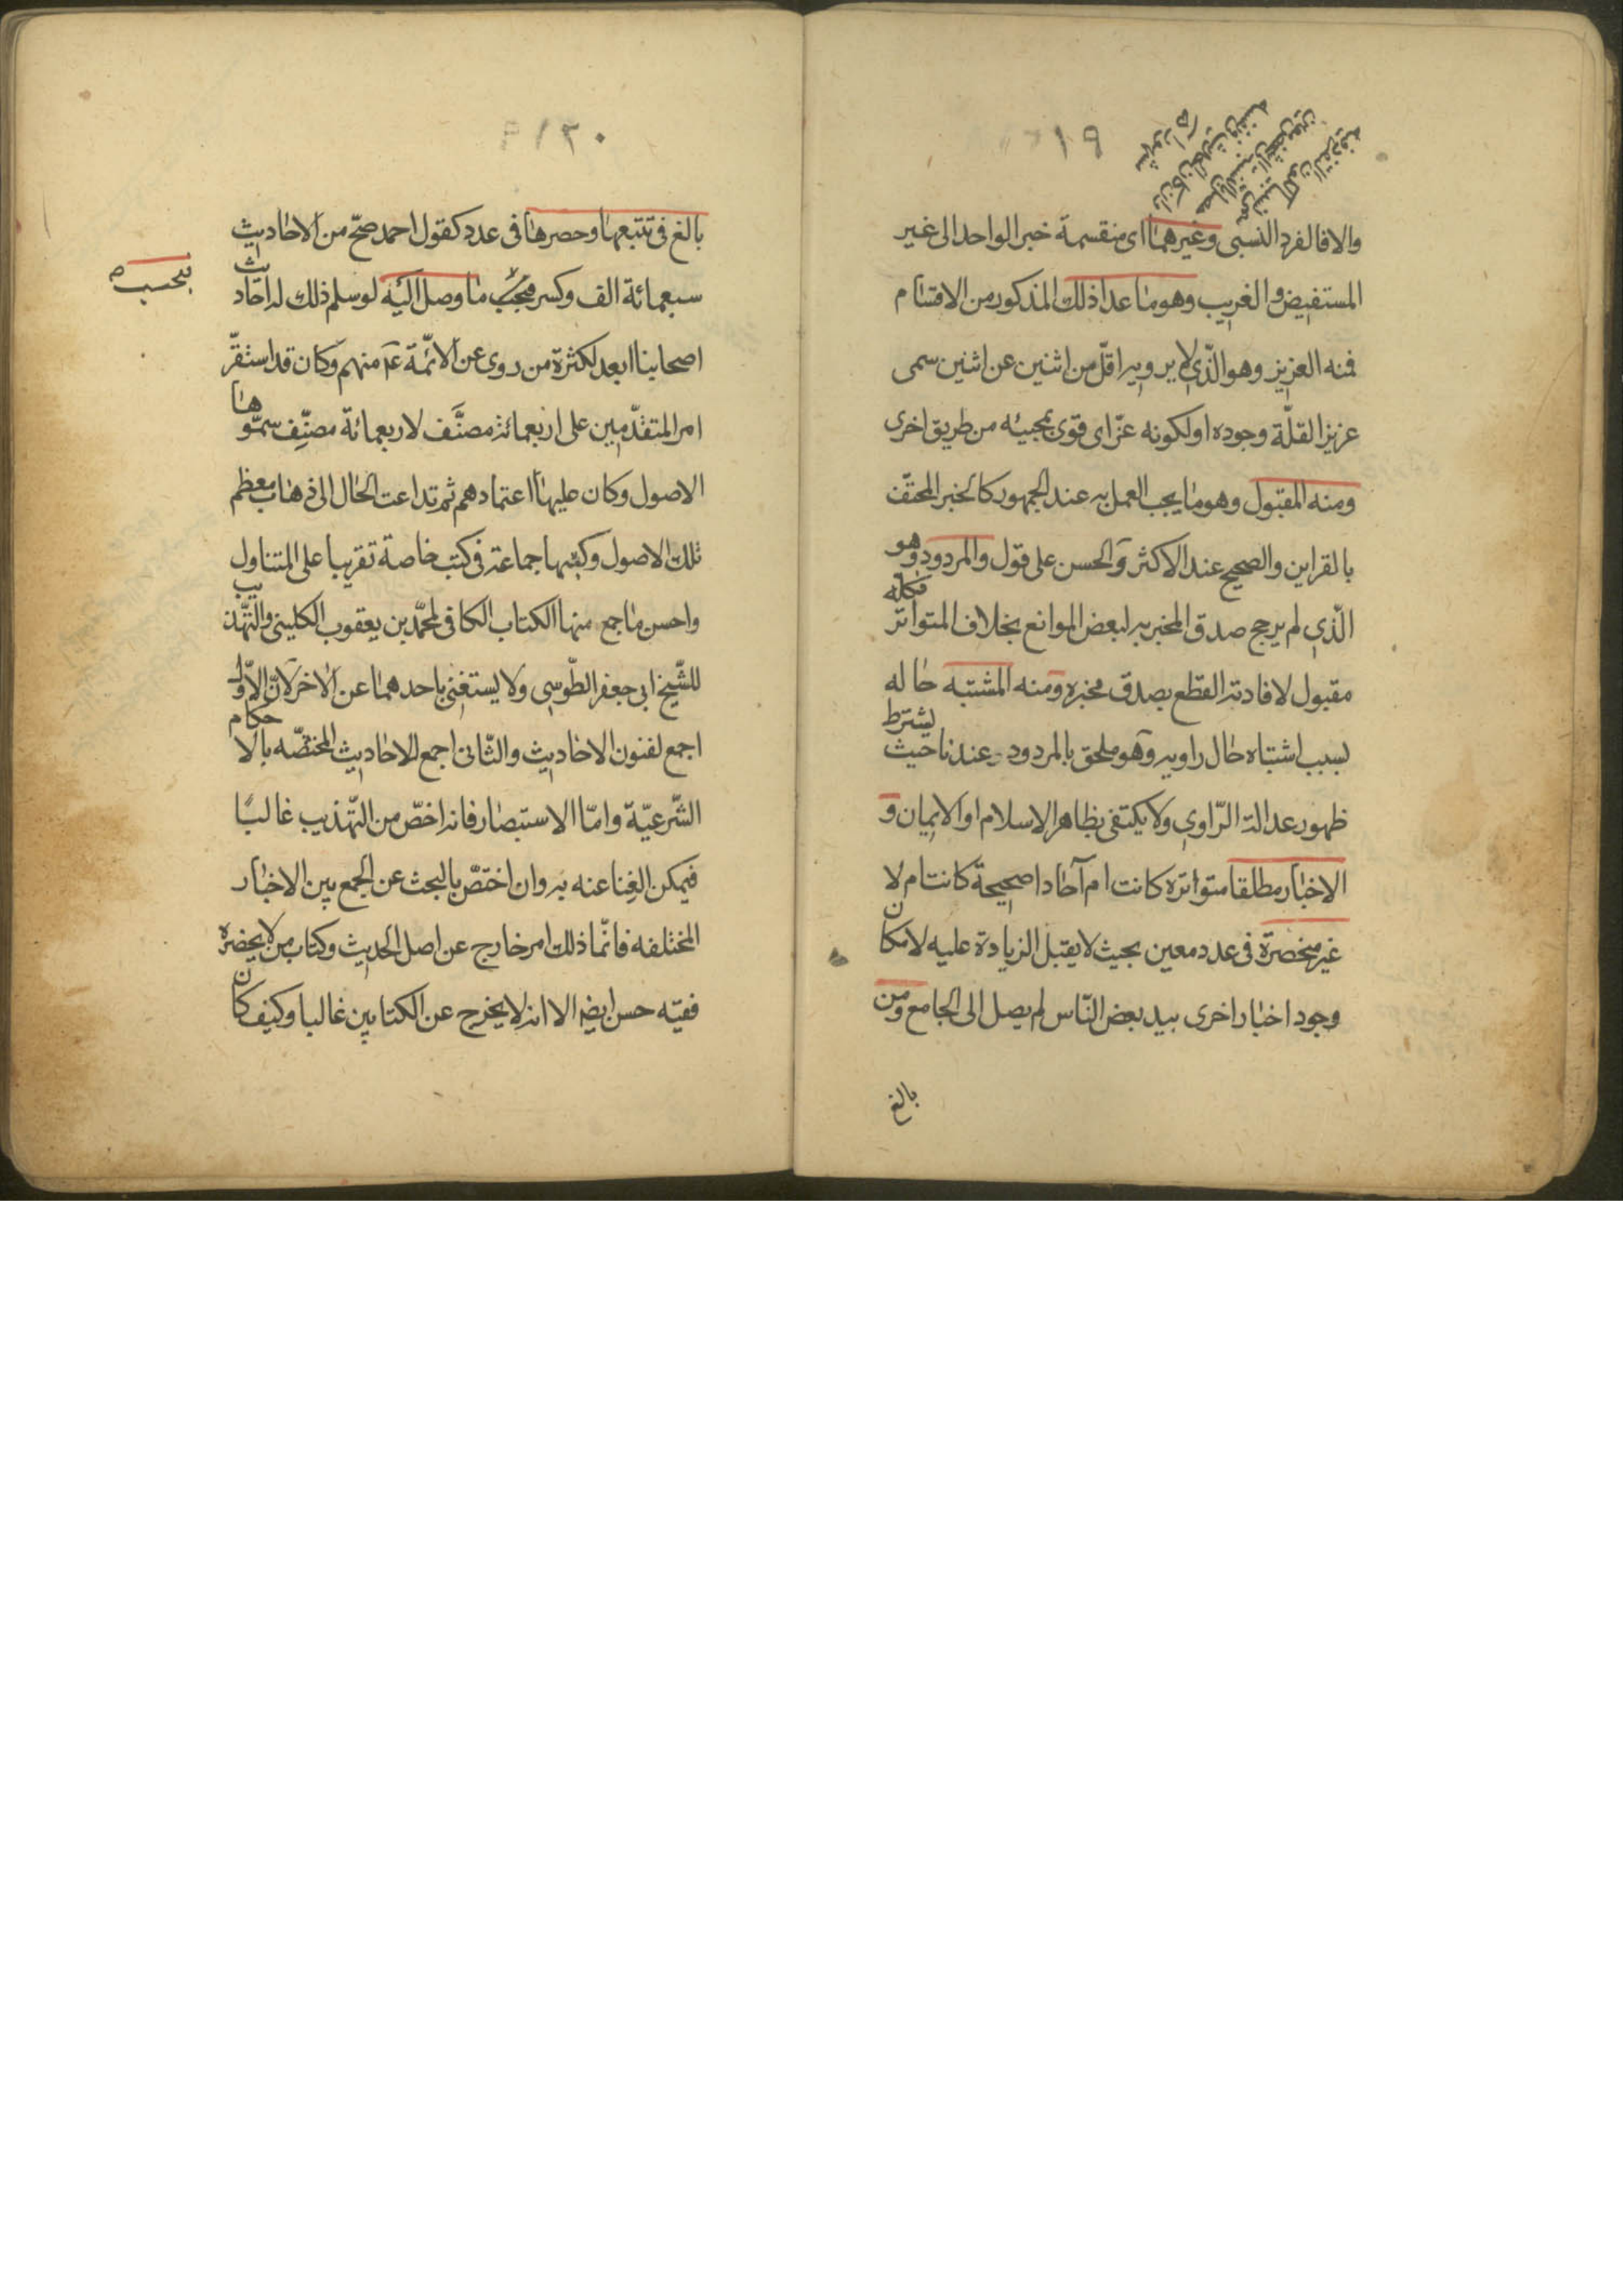 ١٩
والا فالفرد النسبى وغيرهما اى منقسمة خبر الواحد الى غير
المستفيض والغريب وهو ما عدا ذلك المذكور من الاقسام
فمنه العزيز وهو الّذي لا يرويه اقلّ من اثنين عن اثنين سمى
عزيزا لقلّة وجوده او لكونه عزّ اى قوى بمجيئه من طريق اخرى
ومنه المقبول وهو ما يجب العمل به عند الجمهور كالخبر المحتف
بالقراين والصحيح عند الاكثر والحسن على قول والمردود وهو
الّذي لم يرجح صدق المخبر به لبعض الموانع بخلاف المتواتر فكلّه
مقبول لافادته القطع بصدق مخبره ومنه المشتبه حاله
بسبب اشتباه حال راويه وهو ملحق بالمردود عندنا حيث يشترط
ظهور عدالة الرّاوي ولا يكتفى بظاهر الاسلام او الايمان و
الاخبار مطلقا متواترة كانت ام آحادا صحيحة كانت ام لا
غير منحصرة في عدد معين بحيث لا يقبل الزيادة عليه لامكان
وجود اخبار اخرى بيد بعض النّاس لم يصل الى الجامع ومن
بالغ
١٢٠
بالغ في تتبعها وحصرها في عدد كقول احمد صحّ من الاحاديث
سبعمائة الف وكسر فبحسب ما وصل اليه لو سلم ذلك له احاديث
بحسب
اصحابنا ابعد لكثرة من روى عن الائمّة عم منهم وكان قد استقرّ
امر المتقدّمين على اربعمائة مصنَّف لاربعمائة مصنِّف سمّوها
الاصول وكان عليها اعتمادهم ثم تداعت الحال الى ذهاب معظم
تلك الاصول وكتبها جماعة في كتب خاصة تقريبا على المتناول
واحسن ما جمع منها الكتاب الكافى لمحمّد بن يعقوب الكلينى والتهذيب
للشّيخ ابى جعفر الطّوسي ولا يستغنى باحدهما عن الاخر لانّ الاوّل
اجمع لفنون الاحاديث والثّانى اجمع للاحاديث المختصّه بالاحكام
الشّرعيّة وامّا الاستبصار فانه اخصّ من التهذيب غالبًا
فيمكن الغنا عنه به وان اختصّ بالبحث عن الجمع بين الاخبار
المختلفه فانّما ذلك امر خارج عن اصل الحديث وكتاب من لا يحضره
فقيه حسن ايضا الا انه لا يخرج عن الكتابين غالبا وكيف كان